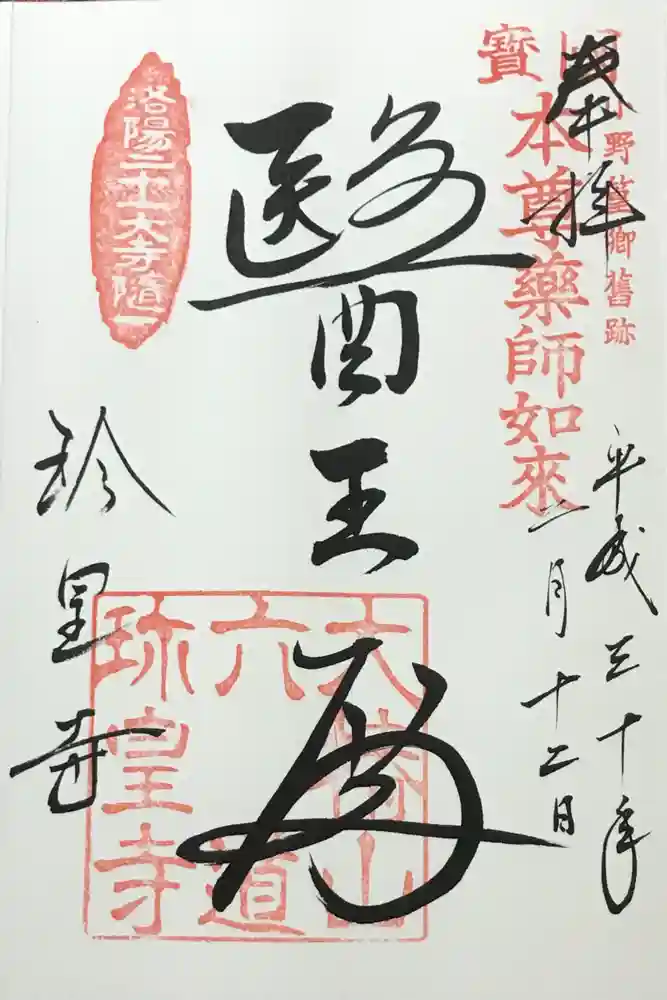 奉拝
國寶
小野篁卿舊跡
本尊薬師如來
平成三十年
二月十二日
醫王殿
洛陽二十一大寺随一
大椿山
六道
珎皇寺
珍皇寺